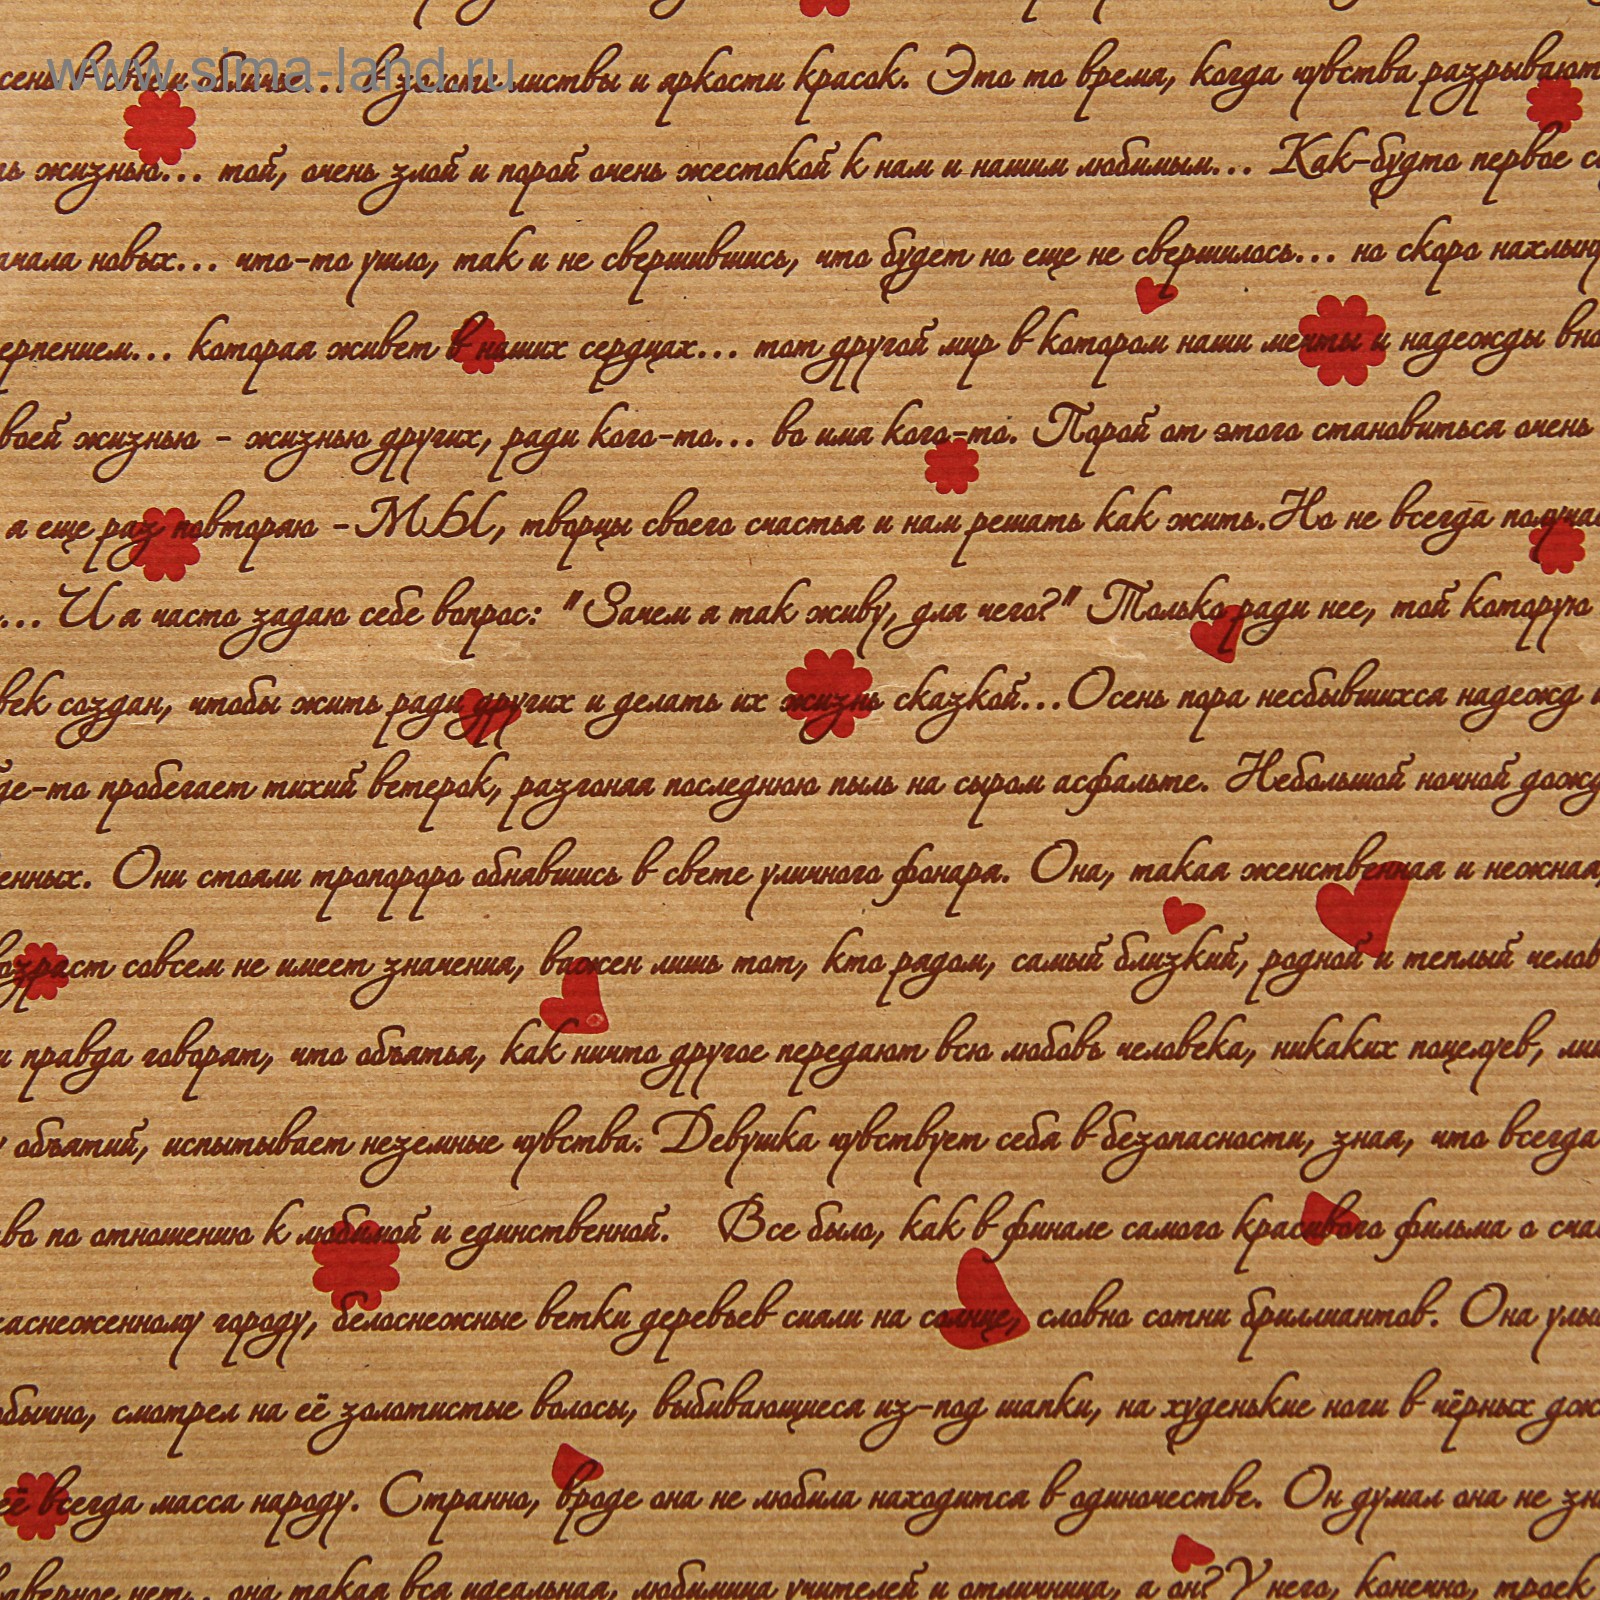 www.sima-land.ru
листвы и яркости красок. Это то время, когда чувства разрывают
ть жизнью... той, очень злой и порой очень жестокой к нам и нашим любимым... Как-будто первое
ачала новых... что-то ушло, так и не свершившись, что будет но еще не свершилось... но скоро нахлын
ерпением... которая живет в наших сердцах... тот другой мир в котором наши мечты и надежды
воей жизнью - жизнью других, ради кого-то... во имя кого-то. Порой от этого становиться очень
а еще раз повторяю -МЫ, творцы своего счастья и нам решать как жить.Но не всегда получае
... И я часто задаю себе вопрос: "Зачем я так живу, для чего?" Только ради нее, той которую
век создан, чтобы жить ради других и делать их жизнь сказкой...Осень пора несбывшихся надежд и
де-то пробегает тихий ветерок, разгоняя последнюю пыль на сыром асфальте. Небольшой ночной дожд
енных. Они стояли тропороро обнявшись в свете уличного фонаря. Она, такая женственная и нежная,
возраст совсем не имеет значения, важен лишь тот, кто рядом, самый близкий, родной и теплый челов
и правда говорят, что объятья, как ничто другое передают всю любовь человека, никаких поцелуев, ли
объятий, испытывает неземные чувства. Девушка чувствует себя в безопасности, зная, что всегда
во по отношению к любимой и единственной. Все было, как в финале самого красивого фильма о сча
заснеженному городу, белоснежные ветки деревьев сияли на солнце, словно сотни бриллиантов. Она улы
обычно, смотрел на её золотистые волосы, выбивающиеся из-под шапки, на худенькие ноги в чёрных дж
её всегда масса народу. Странно, вроде она не любила находится в одиночестве. Он думал она не зн
наверное нет... она такая вся идеальная, любимица учителей и отличница, а он? У него, конечно, троек